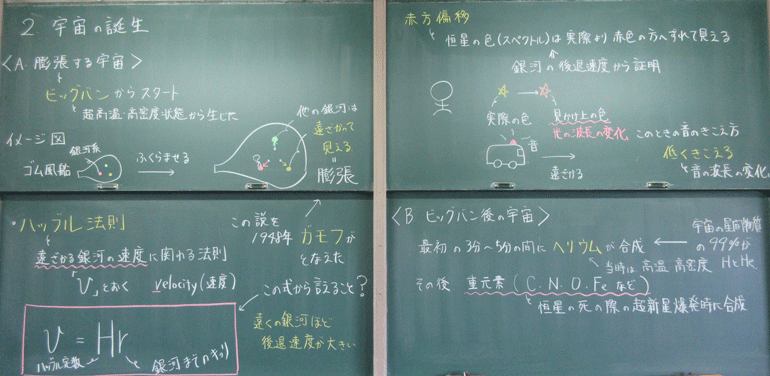 2 宇宙の誕生
〈A 膨張する宇宙〉
ビッグバンからスタート
超高温・高密度状態から生じた
イメージ図
銀河系
ゴム風船
ふくらませる
他の銀河は
遠ざかって
見える
=
膨張
・ハッブル法則
遠ざかる銀河の速度に関わる法則
「v」とおく velocity(速度)
v = Hr
ハッブル定数
銀河までのキョリ
この説を
1948年 ガモフが
となえた
この式から言えること?
遠くの銀河ほど
後退速度が大きい
赤方偏移
恒星の色(スペクトル)は実際より赤色の方へずれて見える
銀河の後退速度から証明
実際の色
見かけ上の色
光の波長が変化
音
遠ざかる
このときの音のきこえ方
低くきこえる
音の波長が変化
〈B ビッグバン後の宇宙〉
最初の3分~5分の間にヘリウムが合成
当時は高温 高密度
宇宙の星間物質
の99%が
HとHe
その後 重元素(C.N.O.Feなど)
恒星の死の際の超新星爆発時に合成